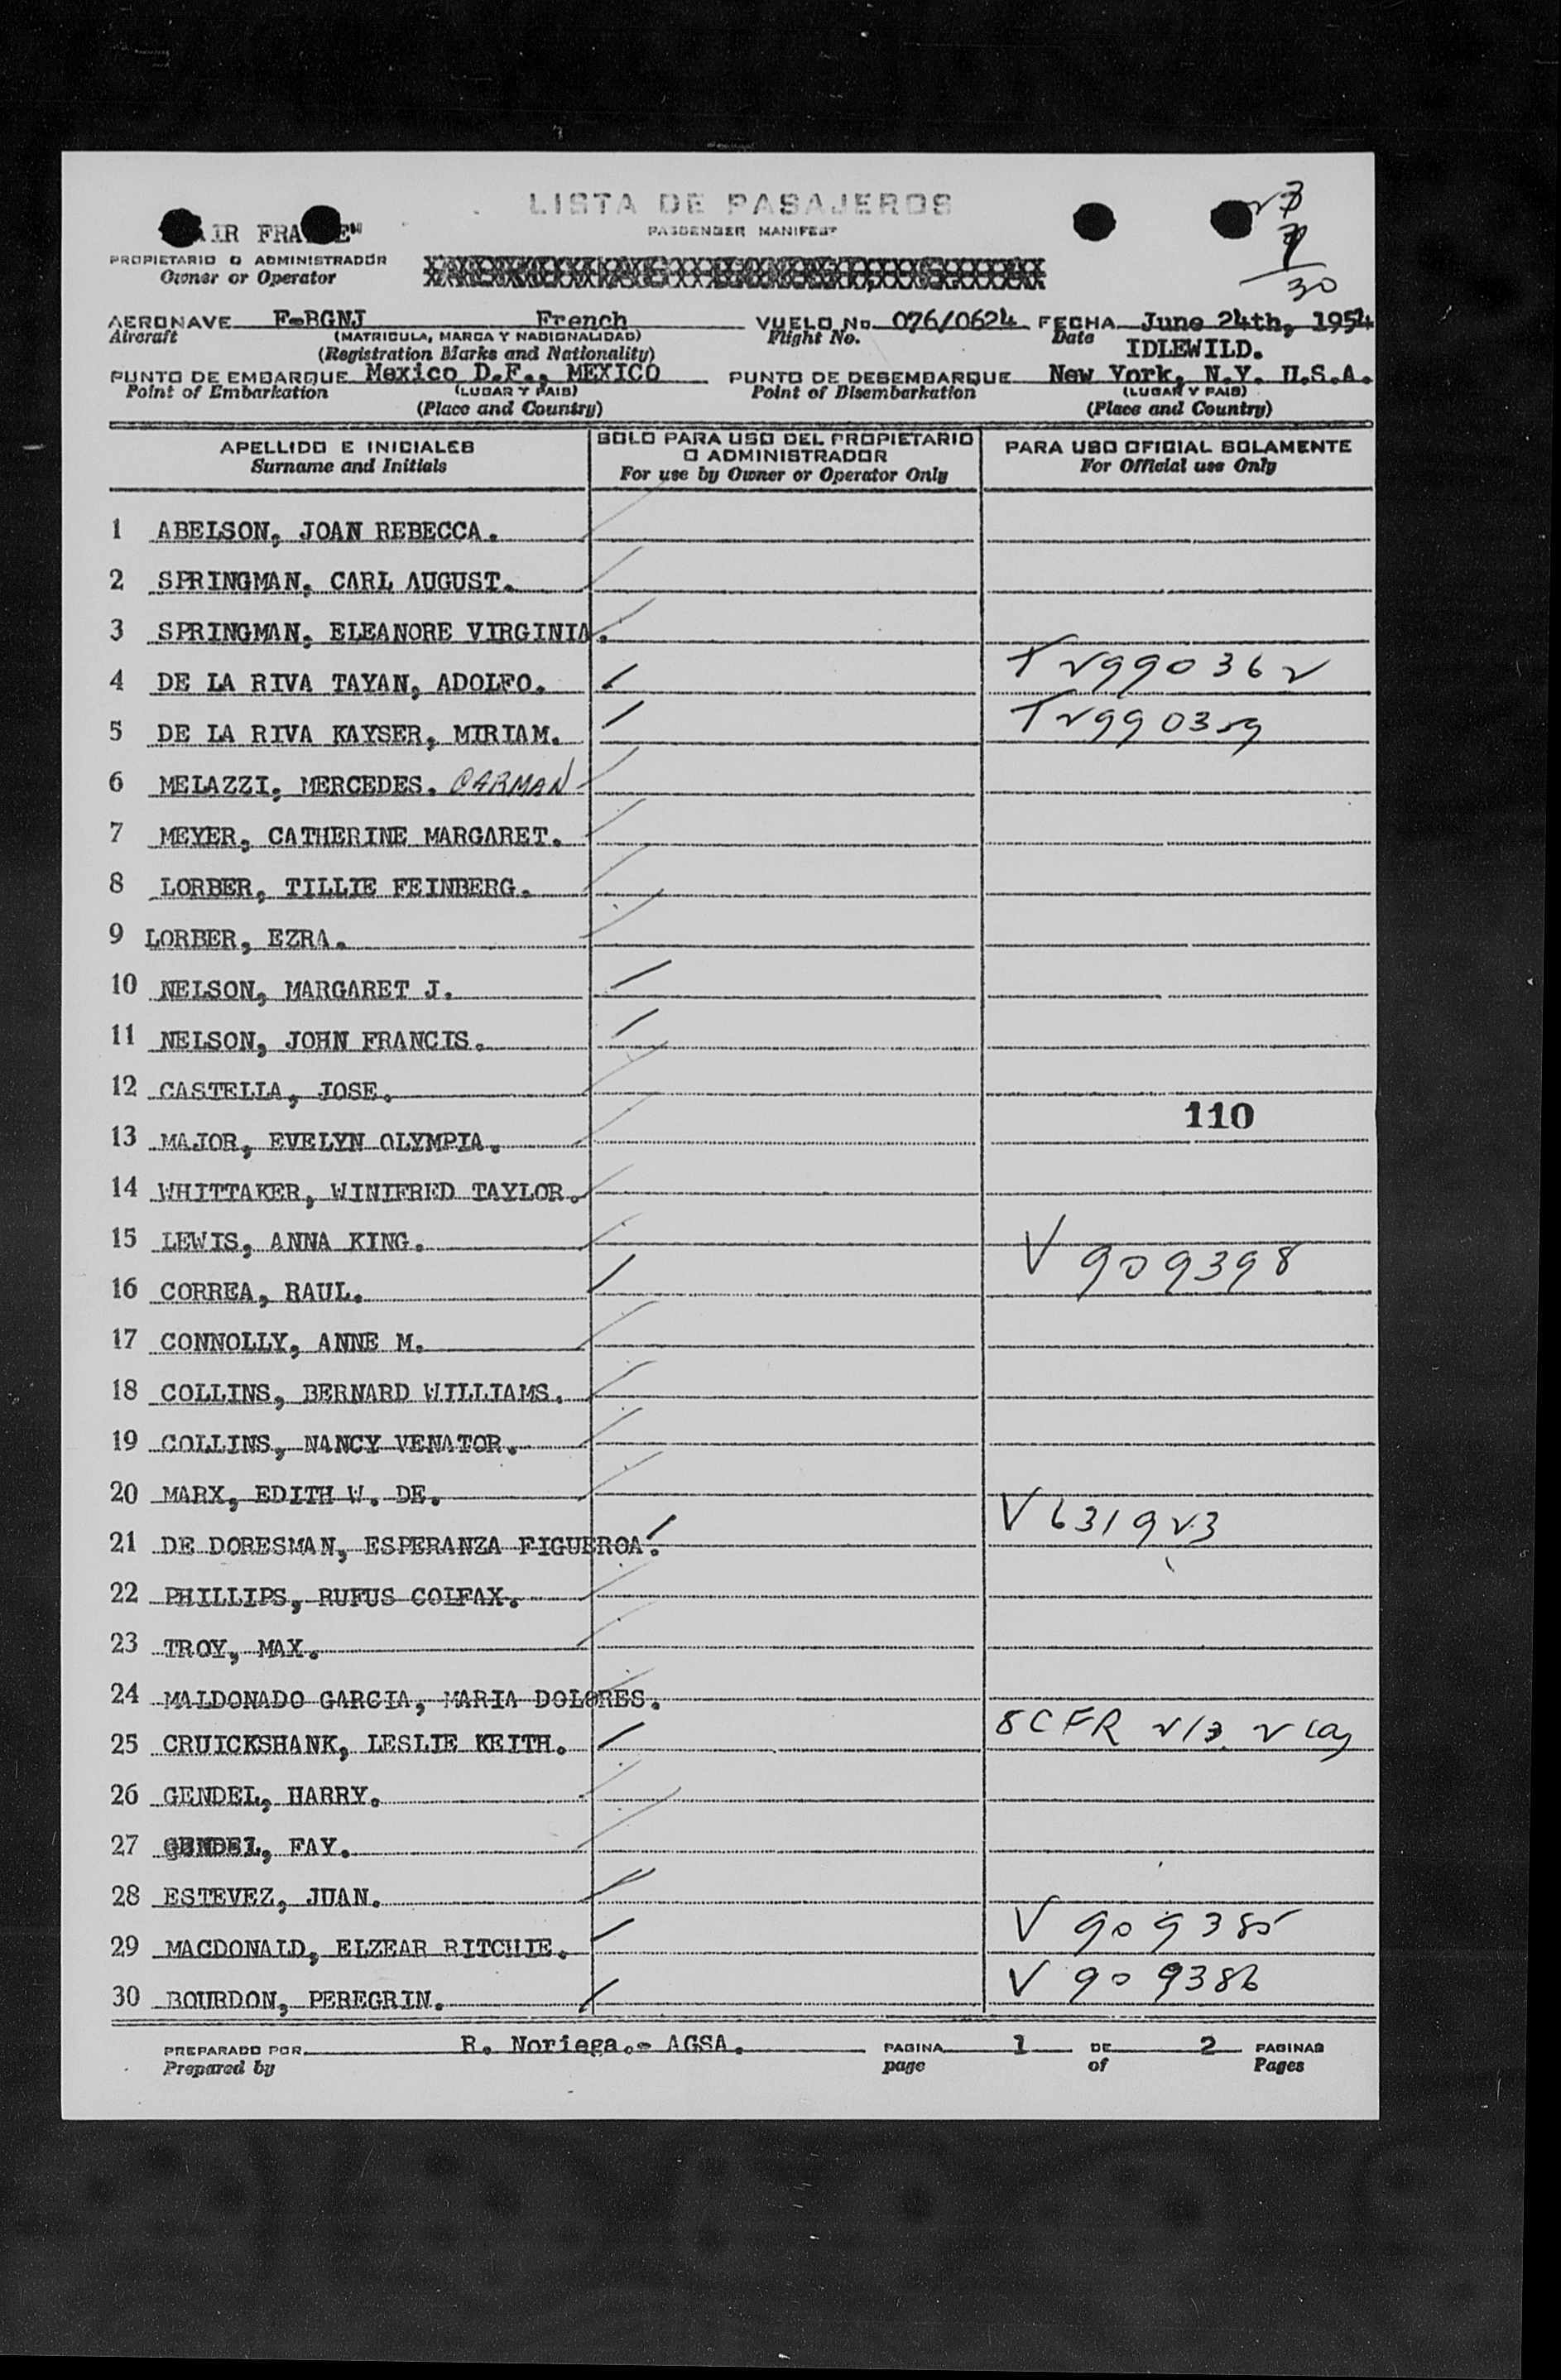 LISTA DE PASAJEROS
PASSENGER MANIFEST
AIR FRA E"
PROPIETARIO O ADMINISTRADOR
Owner or Operator
23
7
30
AERONAVE F-BGNJ French VUELO No. 076/0624 FECHA June 24th, 1954
Aircraft (MATRICULA, MARCA Y NACIONALIDAD) Flight No. Date
(Registration Marks and Nationality) IDLEWILD.
PUNTO DE EMBARQUE Mexico D.F., MEXICO PUNTO DE DESEMBARQUE New York, N.Y. U.S.A.
Point of Embarkation (LUGAR Y PAIS) Point of Disembarkation (LUGAR Y PAIS)
(Place and Country) (Place and Country)
APELLIDO E INICIALES SOLO PARA USO DEL PROPIETARIO O ADMINISTRADOR PARA USO OFICIAL SOLAMENTE
Surname and Initials For use by Owner or Operator Only For Official use Only
1 ABELSON, JOAN REBECCA.
2 SPRINGMAN, CARL AUGUST.
3 SPRINGMAN, ELEANORE VIRGINIA.
4 DE LA RIVA TAYAN, ADOLFO. T 2990362
5 DE LA RIVA KAYSER, MIRIAM. T 2990359
6 MELAZZI, MERCEDES. CARMAN
7 MEYER, CATHERINE MARGARET.
8 LORBER, TILLIE FEINBERG.
9 LORBER, EZRA.
10 NELSON, MARGARET J.
11 NELSON, JOHN FRANCIS.
12 CASTELLA, JOSE.
110
13 MAJOR, EVELYN OLYMPIA.
14 WHITTAKER, WINIFRED TAYLOR.
15 LEWIS, ANNA KING.
16 CORREA, RAUL. V 909398
17 CONNOLLY, ANNE M.
18 COLLINS, BERNARD WILLIAMS.
19 COLLINS, NANCY VENATOR.
20 MARX, EDITH W. DE.
21 DE DORESMAN, ESPERANZA FIGUEROA. V 631923
22 PHILLIPS, RUFUS COLFAX.
23 TROY, MAX.
24 MALDONADO GARCIA, MARIA DOLORES.
25 CRUICKSHANK, LESLIE KEITH. 8 CFR 213.
26 GENDEL, HARRY.
27 GENDEL, FAY.
28 ESTEVEZ, JUAN.
29 MACDONALD, ELZEAR RITCHIE. V 909385
30 BOURDON, PEREGRIN. V 909386
PREPARADO POR R. Noriega.- AGSA. PAGINA 1 DE 2 PAGINAS
Prepared by page of Pages